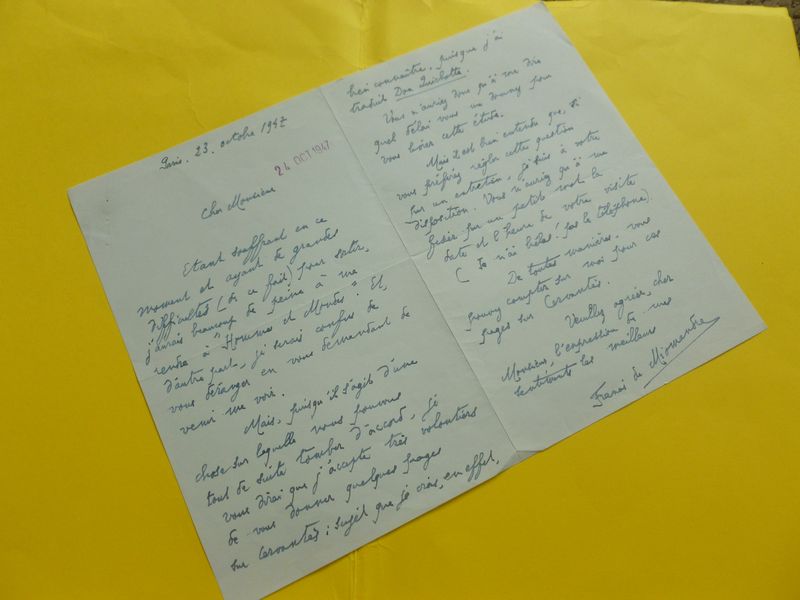 Paris. 23. octobre 1947
24 OCT 1947
Cher Monsieur
Etant souffrant en ce
moment et ayant de grandes
difficultés (de ce fait) pour sortir,
j'aurais beaucoup de peine à me
rendre à "Hommes et Mondes". Et,
d'autre part, je serais confus de
vous déranger en vous demandant de
venir me voir.
Mais, puisqu'il s'agit d'une
chose sur laquelle nous pouvons
tout de suite tomber d'accord, je
vous dirai que j'accepte très volontiers
de vous donner quelques pages
sur Cervantès, sujet que je crois, en effet,
bien connaître, puisque j'ai
traduit Don Quichotte.
Vous n'auriez donc qu'à me dire
quel délai vous me donnez pour
vous livrer cette étude.
Mais il est bien entendu que, si
vous préférez régler cette question
par un entretien, je suis à votre
disposition. Vous n'auriez qu'à me
fixer par un petit mot la
date et l'heure de votre visite
(Je n'ai hélas! pas le téléphone).
De toutes manières, vous
pouvez compter sur moi pour ces
pages sur Cervantès.
Veuillez agréer, cher
Monsieur, l'expression de mes
sentiments les meilleurs
Francis de Miomandre